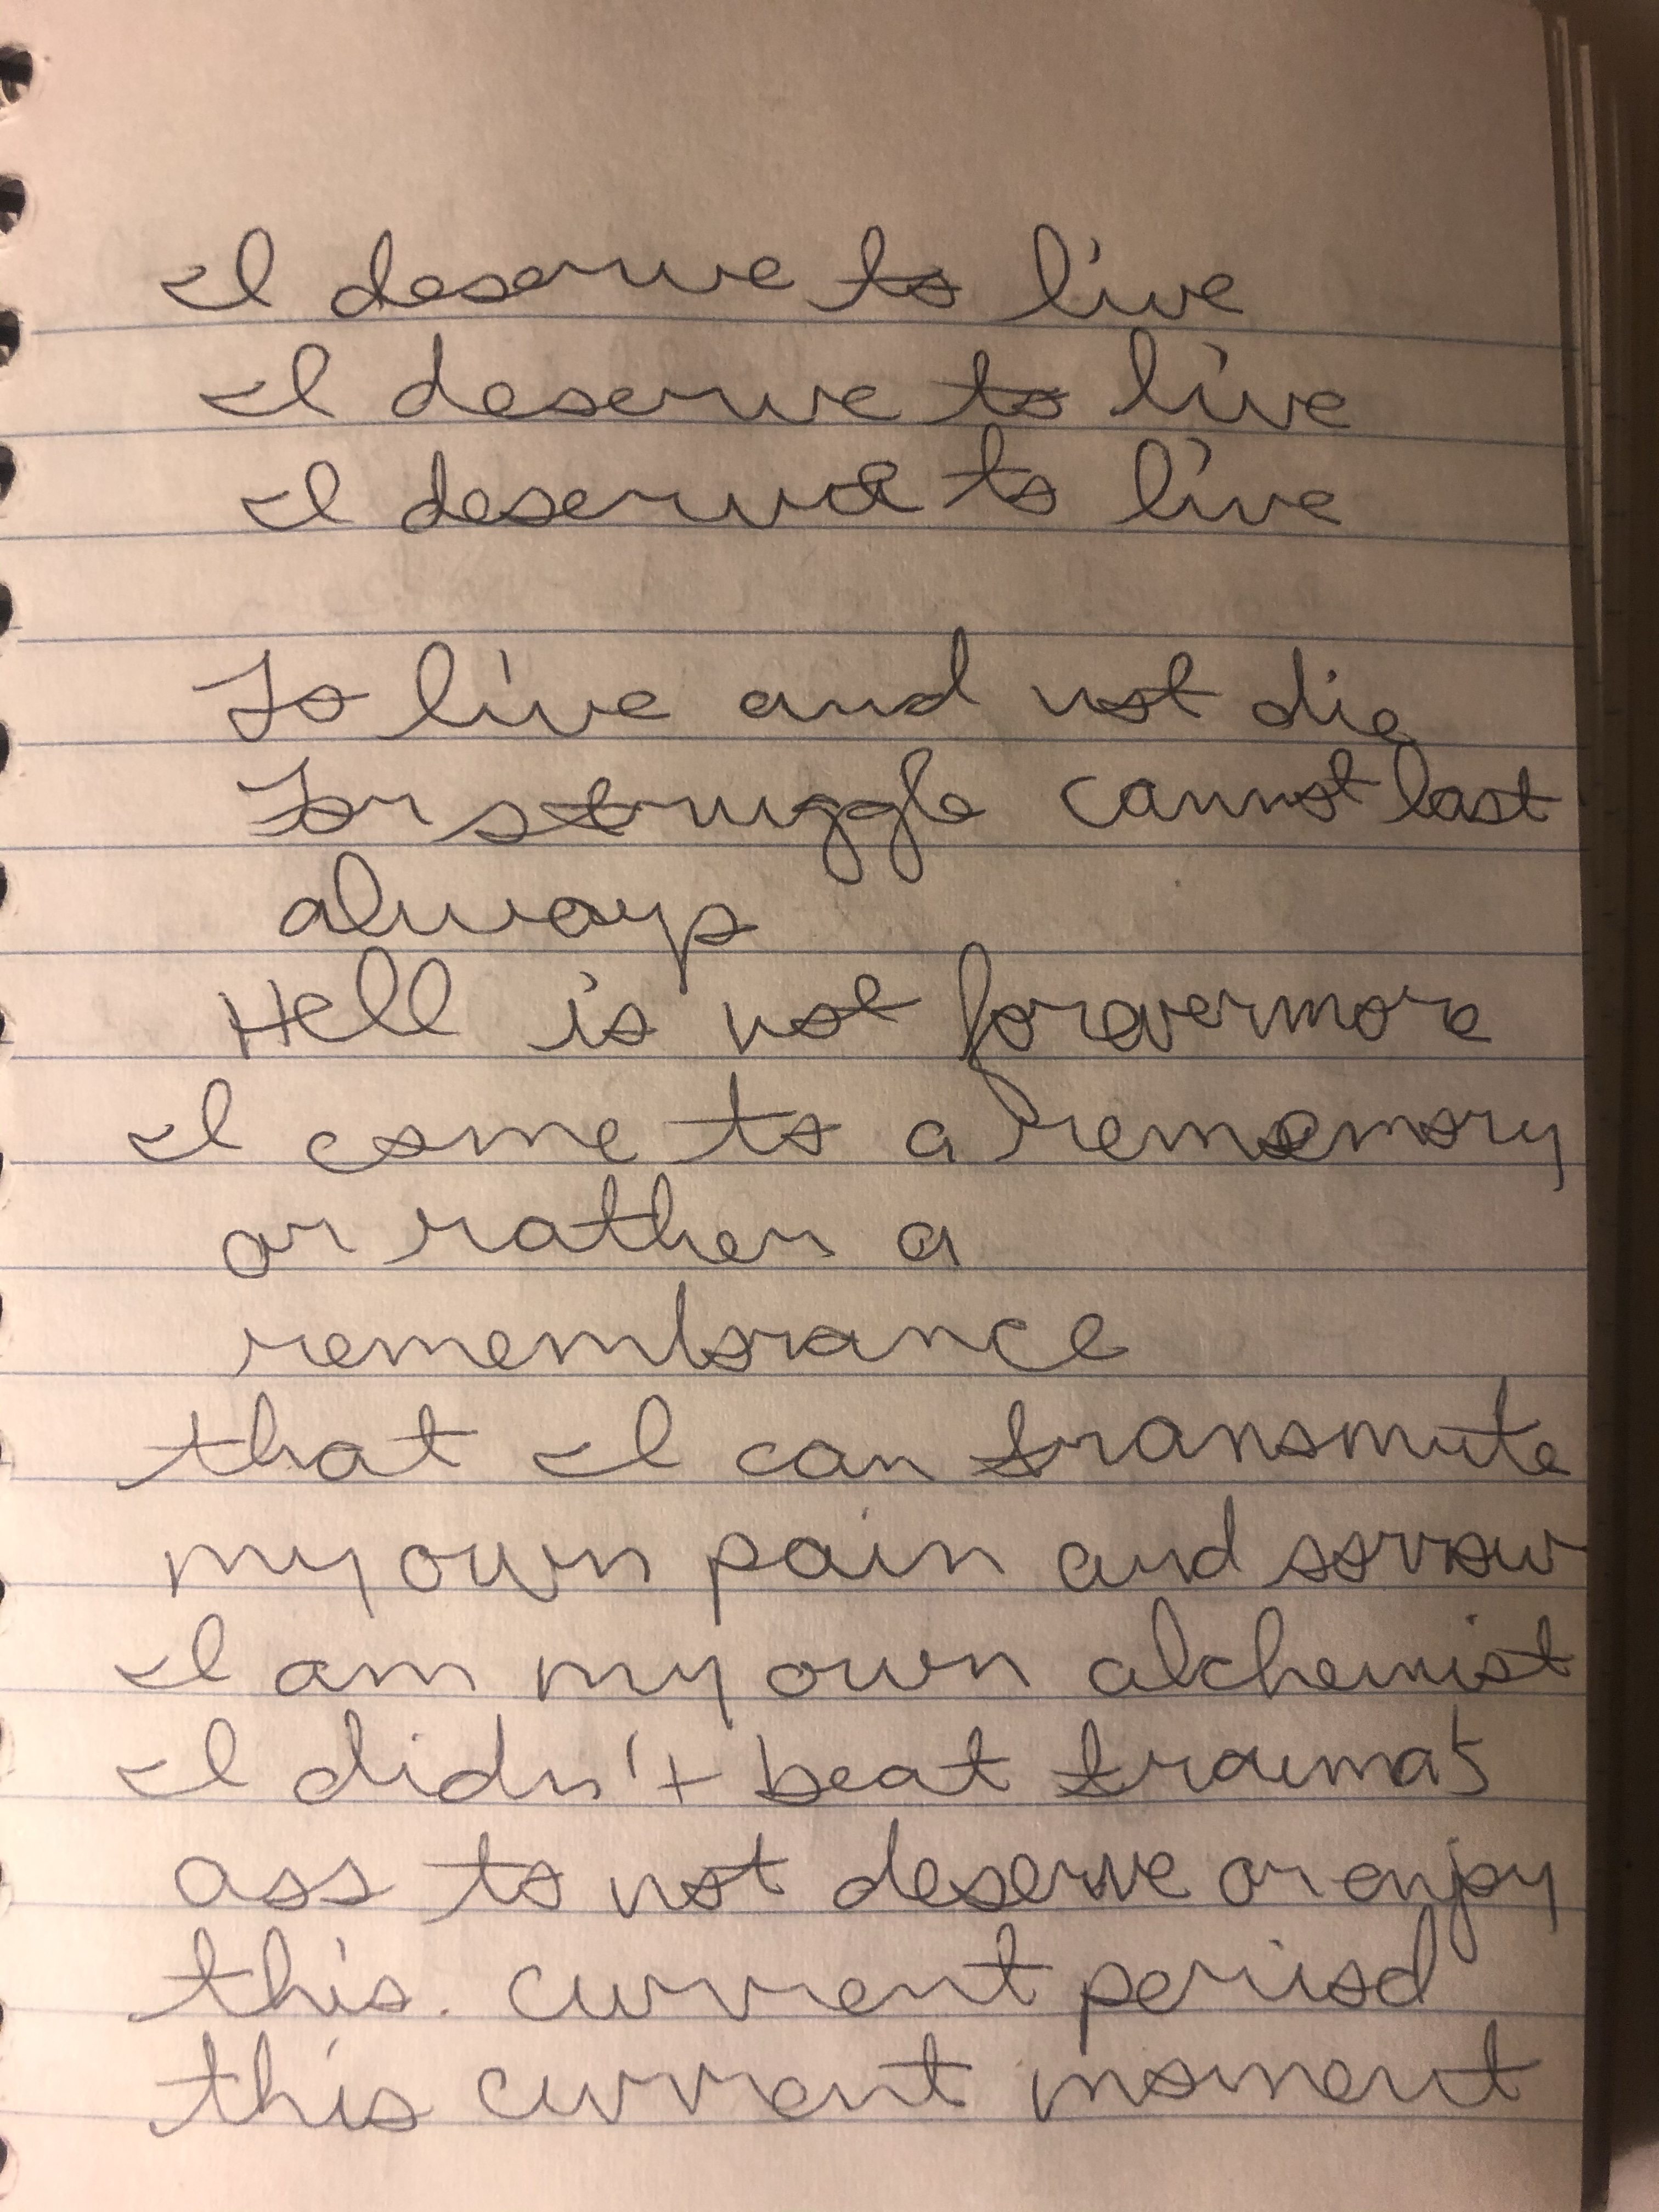 I deserve to live
I deserve to live
I deserve to live
To live and not die
For struggle cannot last
always
Hell is not forevermore
I come to a rememory
or rather a
remembrance
that I can transmute
my own pain and sorrow
I am my own alchemist
I didn't beat trauma's
ass to not deserve or enjoy
this. current period
this current moment